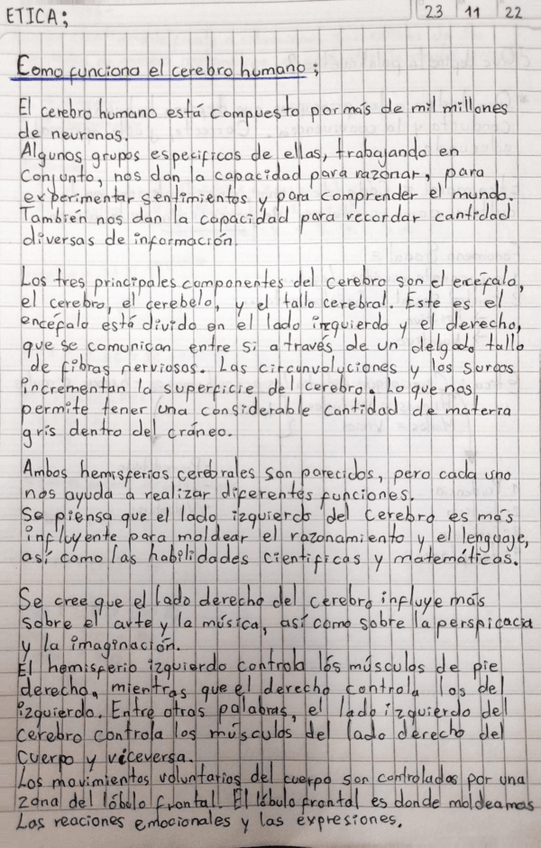 ETICA; 23 11 22
Como funciona el cerebro humano;
El cerebro humano está compuesto por más de mil millones
de neuronas.
Algunos grupos especificos de ellas, trabajando en
conjunto, nos dan la capacidad para razonar, para
experimentar sentimientos y para comprender el mundo.
También nos dan la capacidad para recordar cantidad
diversas de información.
Los tres principales componentes del cerebro son el encéfalo,
el cerebro, el cerebelo, y el tallo cerebral. Éste es el
encéfalo está divido en el lado izquierdo y el derecho,
que se comunican entre si a través de un delgado tallo
de fibras nerviosos. Las circunvoluciones y los surcos
incrementan la superficie del cerebro. Lo que nos
permite tener una considerable cantidad de materia
gris dentro del cráneo.
Ambos hemisferios cerebrales son parecidos, pero cada uno
nos ayuda a realizar diferentes funciones.
Se piensa que el lado izquierdo del cerebro es más
influyente para moldear el razonamiento y el lenguaje,
así como las habilidades cientificas y matemáticas.
Se cree que el lado derecho del cerebro influye más
sobre el arte y la música, así como sobre la perspicacia
y la imaginación.
El hemisferio izquierdo controla los músculos de pie
derecho, mientras que el derecho controla los del
izquierdo. Entre otras palabras, el lado izquierdo del
cerebro controla los músculos del lado derecho del
cuerpo y viceversa.
Los movimientos voluntarios del cuerpo son controlados por una
zona del lóbulo frontal. El lóbulo frontal es donde moldeamos
Las reaciones emocionales y las expresiones.